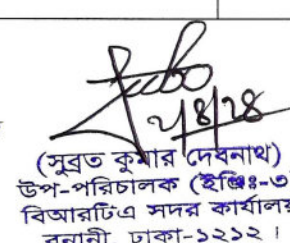 ২/৪/২৪
(সুব্রত কুমার দেবনাথ)
উপ-পরিচালক (ইঞ্জিঃ-৩)
বিআরটিএ সদর কার্যালয়
বনানী, ঢাকা-১২১২।